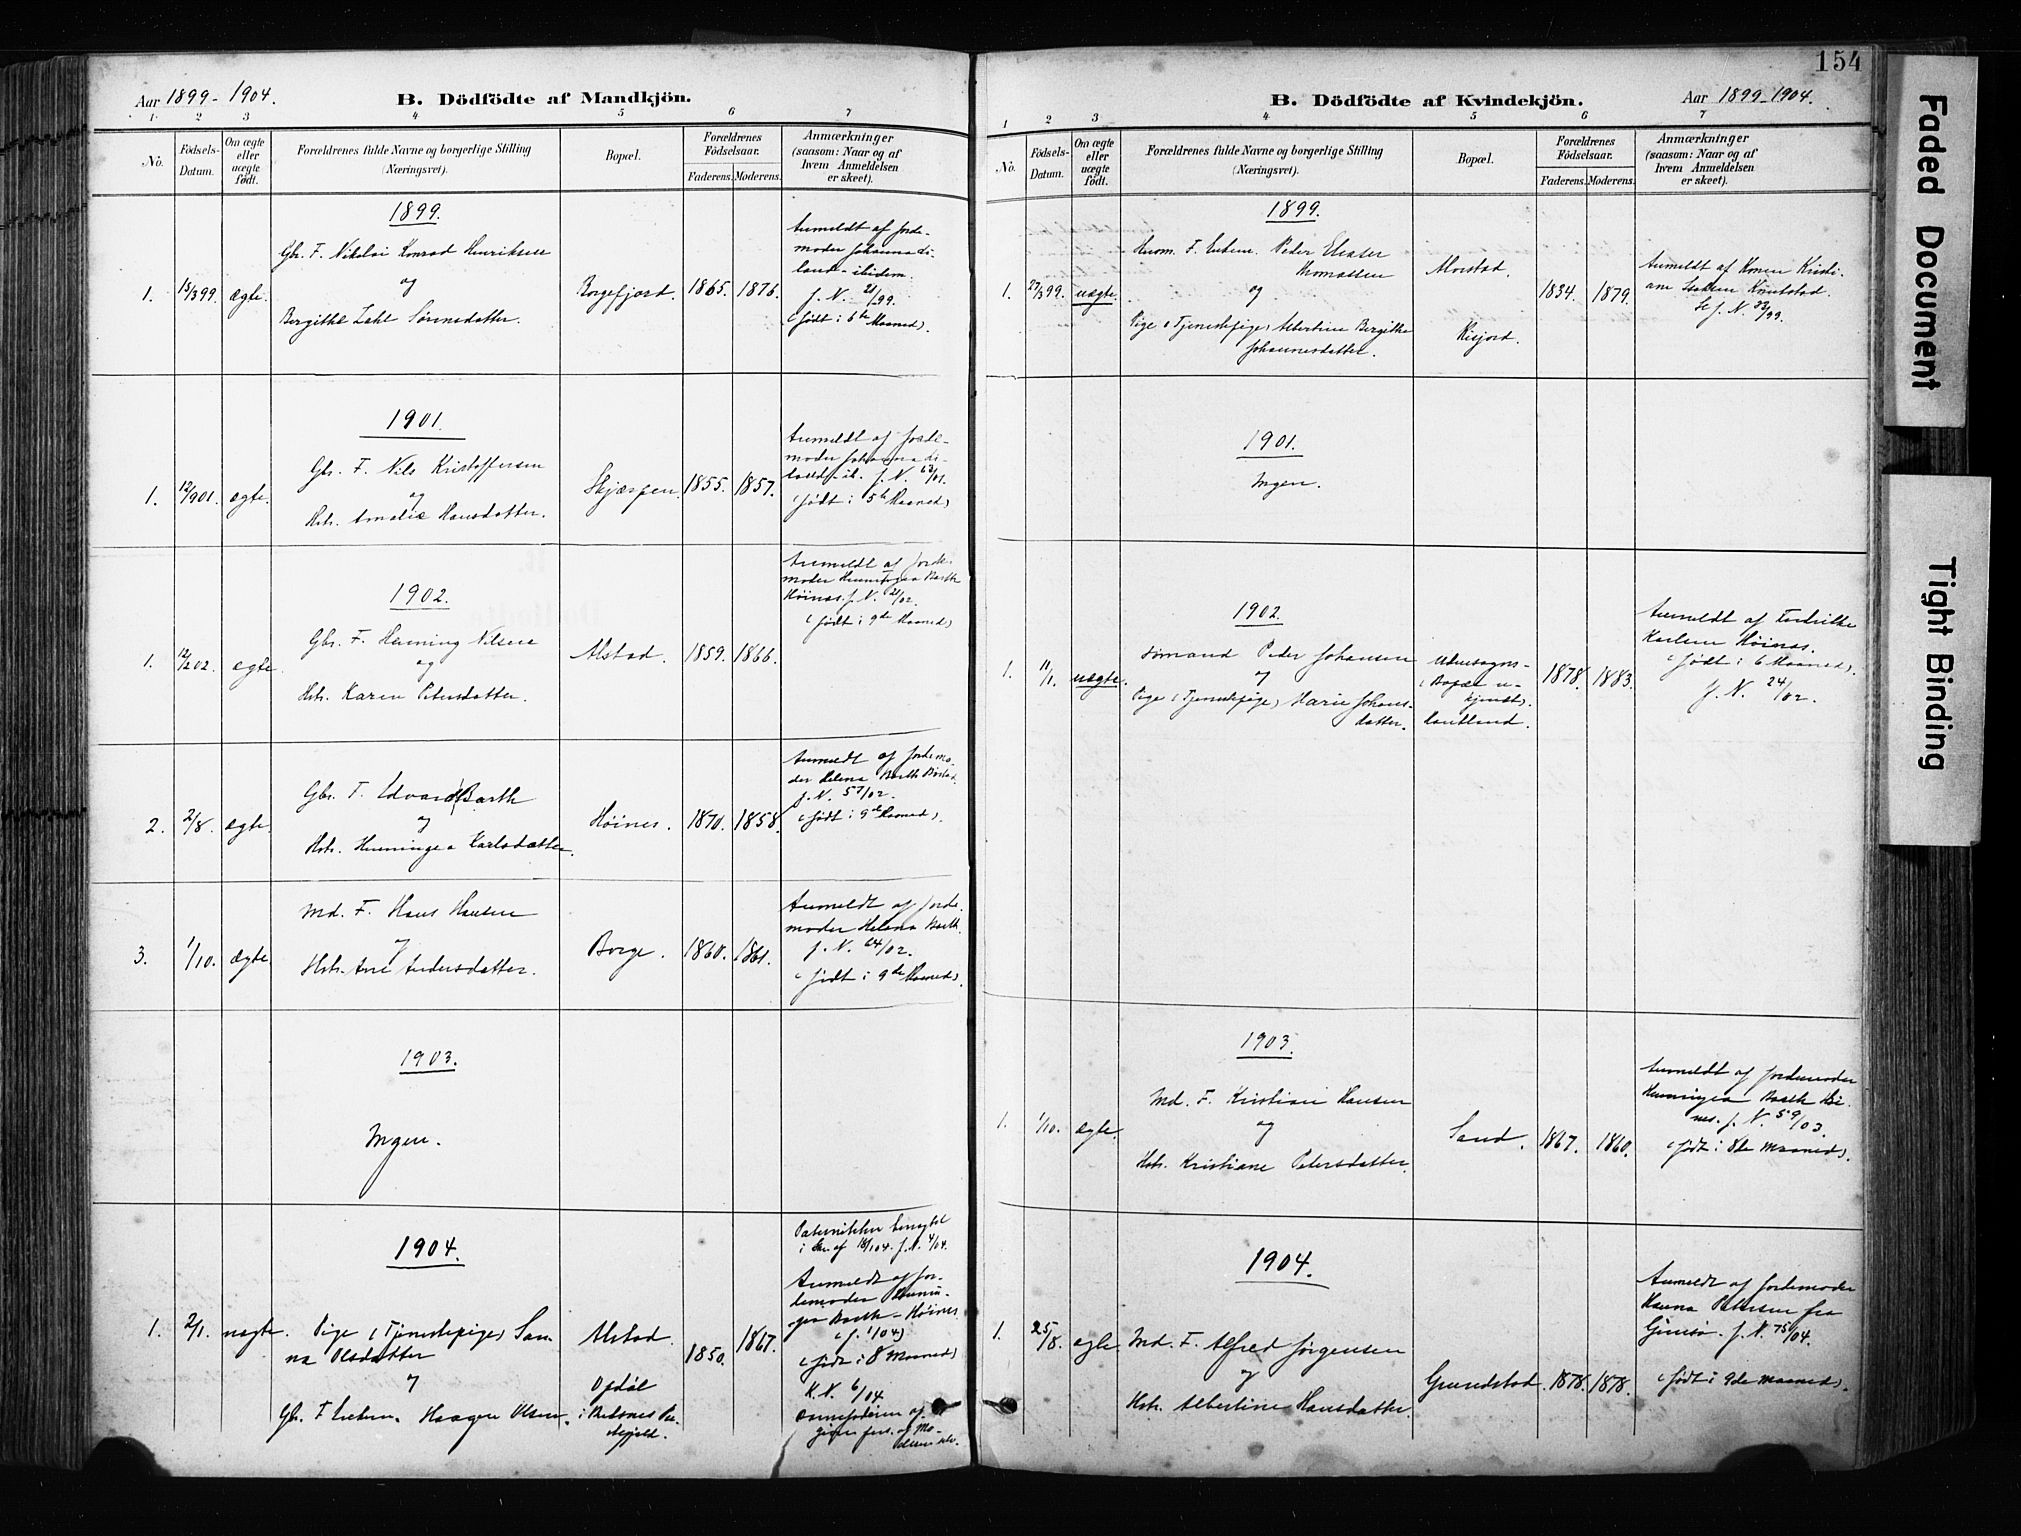 Aar 1899-1904.
B. Dödfödte af Mandkjön.
1 2 3 4 5 6 7
No.
Födsels-
Datum.
Om ægte
eller
uægte
födt.
Forældrenes fulde Navne og borgerlige Stilling
(Næringsvei).
Bopæl.
Forældrenes
Födselsaar.
Faderens. Moderens.
Anmærkninger
(saasom: Naar og af
hvem Anmeldelsen
er skeet).
1899.
Gbr. F. Nikolai Konrad Henriksen
og
Bergithe Zahl Sörensdatter.
1. 15/3 99. ægte. Borgefjord. 1865. 1876.
Anmeldt af Jorde-
moder Johanna Li-
land - ibidem.
J. N. 21/99.
(født i 6te Maaned).
1901.
Gbr. F. Nils Kristoffersen
og
Hstr. Amalie Hansdatter.
1. 12/901. ægte. Skjærpen. 1855. 1857.
Anmeldt af Jorde-
moder Johanna Li-
land - ib. J. N. 63/01.
(født i 5te Maaned)
1902.
Gbr. F. Henning Nilsen
og
Hstr. Karen Petersdatter.
1. 12/2 02. ægte. Alstad. 1859. 1866.
Anmeldt af Jorde-
moder Henningea Barth
Höines. J. N. 21/02.
(født i 9de Maaned)
Gbr. F. Edvard Barth
og
Hstr. Henningea Karlsdatter.
2. 2/8. ægte. Höines. 1870. 1858.
Anmeldt af Jordemo-
der Helena Barth
J. N. 57/02.
(født i 9de Maaned).
Md. F. Hans Hansen
og
Hstr. Ane Andersdatter.
3. 1/10. ægte Borge. 1860. 1861.
Anmeldt af Jorde-
moder Helena Barth.
J. N. 64/02.
(født i 9de Maaned)
1903.
Ingen.
1904.
1. 2/1. uægte. Pige (Tjenestepige) San-
na Olsdatter
og
Gbr. F. Enkem. Haagen Olsen.
Alstad.
Opdöl
i Buksnes
1850. 1867.
i 18/1 04. J. N. 4/04.
Anmeldt af Jor-
demoder Hennin-
gea Barth - Höines
(J. 1/04)
(født i 8 Maaned)
K. N. 6/04
154
B. Dödfödte af Kvindekjön.
Aar 1899-1904.
1 2 3 4 5 6 7
No.
Födsels-
Datum.
Om ægte
eller
uægte
födt.
Forældrenes fulde Navne og borgerlige Stilling
(Næringsvei).
Bopæl.
Forældrenes
Födselsaar.
Faderens. Moderens.
Anmærkninger
(saasom: Naar og af
hvem Anmeldelsen
er skeet).
1899.
Husm. F. Enkem. Peder Eleaser
Thomassen
og
Pige (Tjenestepige) Albertine Bergitha
Johannesdatter.
1. 27/3 99. uægte. Morstad.
Risjord.
1834. 1879.
Anmeldt af Konen Kristi-
ane Knutstad.
Se J. N. 32/99.
1901.
Ingen.
1902.
Sömand Peder Johansen
og
Pige (Tjenestepige) Marie Johans-
datter.
1. 11/1. uægte.
(Bopæl u-
kjendt).
1878. 1883.
Anmeldt af Fredrikke
Karlsen Höines.
(født i 6 Maaned).
J. N. 24/02.
1903.
Md. F. Kristian Hansen
og
Hstr. Kristiane Petersdatter.
1. 1/10. ægte. Sand. 1867. 1860.
Anmeldt af Jordemoder
Henningea Barth Höi-
nes. J. N. 59/03.
(født i 8de Maaned).
1904.
1. 25/8. ægte Md. F. Alfred Jörgensen
og
Hstr. Albertine Hansdatter.
Grundstad. 1878. 1878.
Anmeldt af Jordemoder
Hanna Petersen fra
Gimsö. J. N. 75/04.
(født i 9de Maaned).
Faded Document
Tight Binding